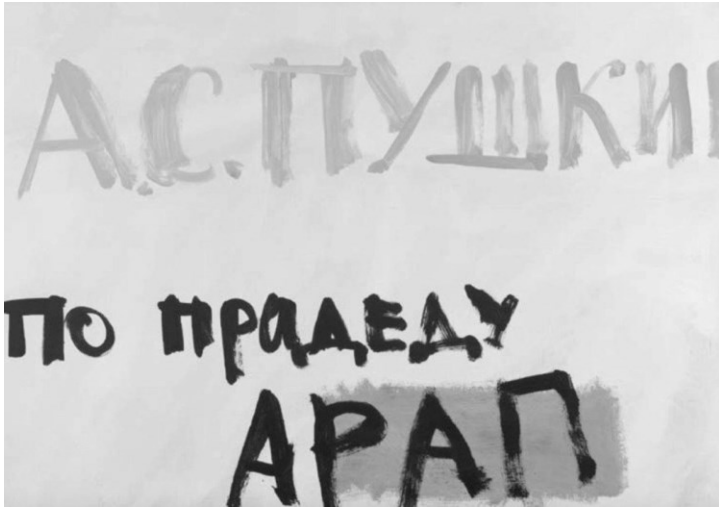 А.С. ПУШКИ
ПО ПРАДЕДУ
АРАП